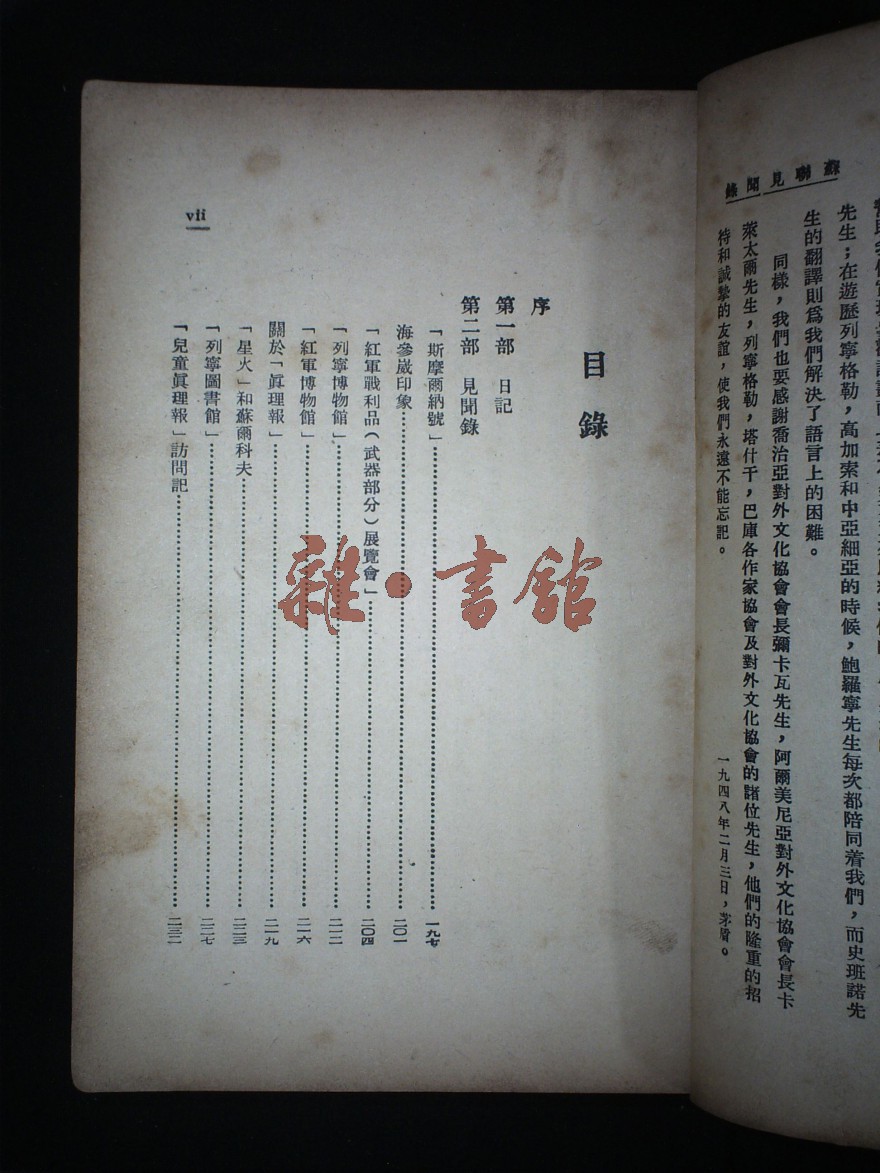 蘇聯見聞錄
先生；在遊歷列寧格勒，高加索和中亞細亞的時候，鮑羅寧先生每次都陪同着我們，而史班諾先
生的翻譯則爲我們解決了語言上的困難。
同樣，我們也要感謝喬治亞對外文化協會會長彌卡瓦先生，阿爾美尼亞對外文化協會會長卡
萊太爾先生，列寧格勒，塔什干，巴庫各作家協會及對外文化協會的諸位先生，他們的隆重的招
待和誠摯的友誼，使我們永遠不能忘記。
一九四八年二月三日，茅盾。
目錄
序
第一部 日記
第二部 見聞錄
「斯摩爾納號」……一九七
海參崴印象……二〇一
「紅軍戰利品（武器部分）展覽會」……二〇四
「列寧博物館」……二一二
「紅軍博物館」……二一六
關於「眞理報」……二一九
「星火」和蘇爾科夫……二二三
「列寧圖書館」……二二七
「兒童眞理報」訪問記……二三二
vii
雜·書館